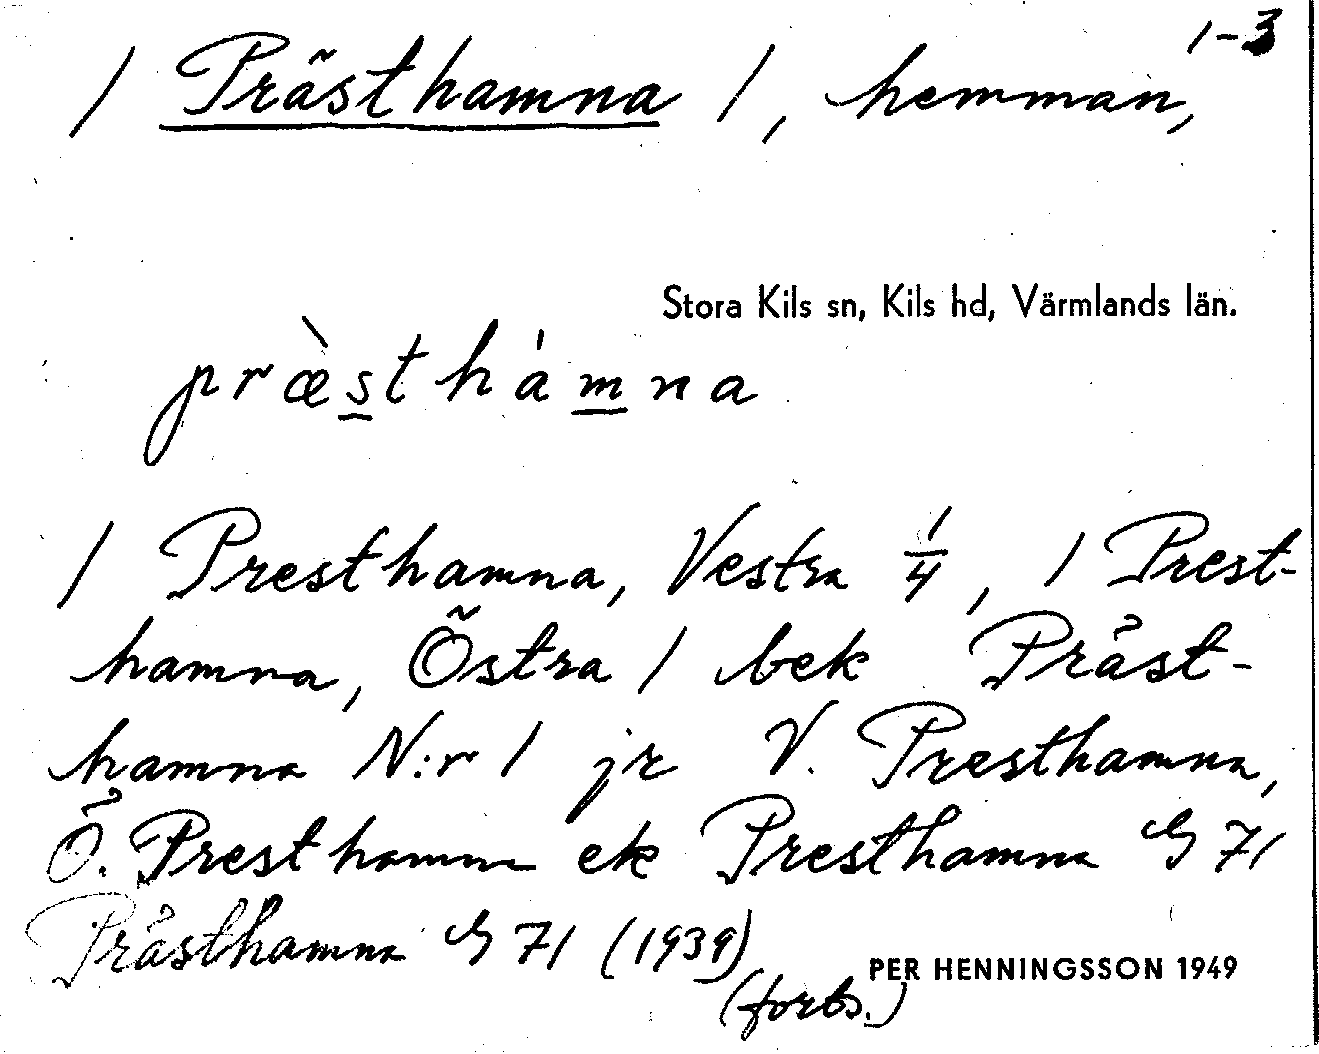 1-3
/ Prästhamna /, hemman,
Stora Kils sn, Kils hd, Värmlands län.
præ̀sthámna
/ Presthamna, Vestra 1/4, / Prest-
hamna, Östra / bek Präst-
hamna N:r 1 jr V. Presthamna,
Ö. Presthamna ek Presthamna G 71
Prästhamna G 71 (1939)
(forts.)
PER HENNINGSSON 1949